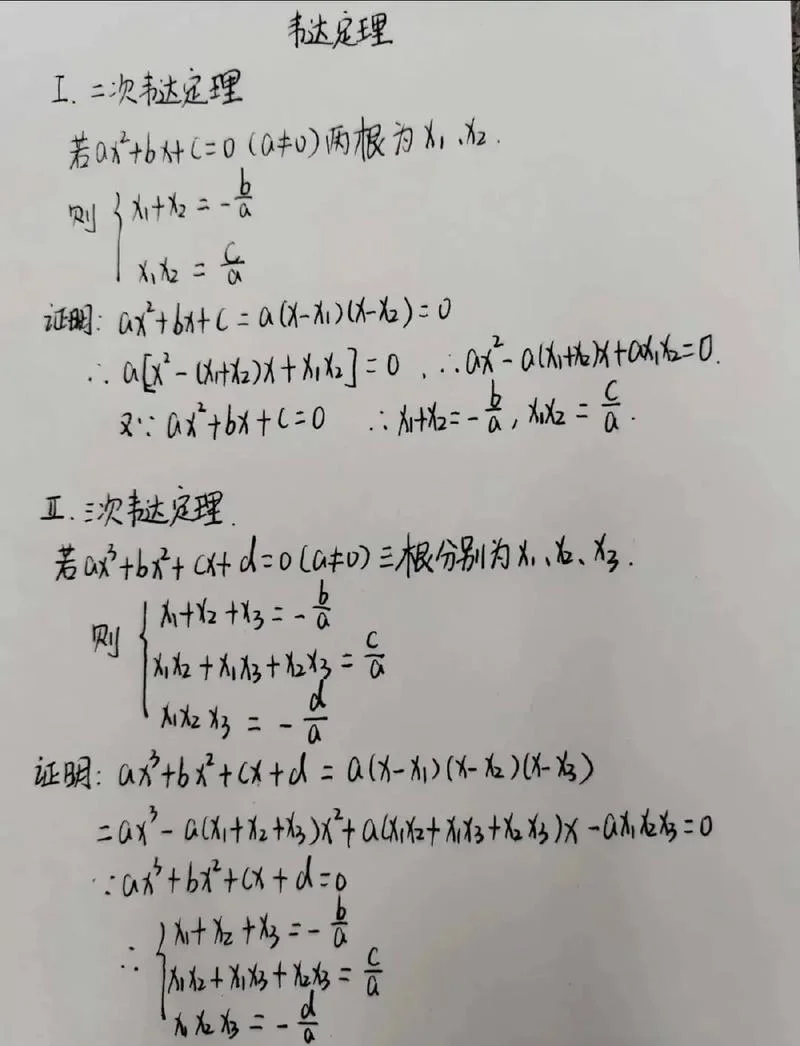 韦达定理
I. 二次韦达定理
若ax²+bx+c=0(a≠0)两根为x₁、x₂.
则 { x₁+x₂ = -b/a
x₁x₂ = c/a
证明: ax²+bx+c = a(x-x₁)(x-x₂)=0
∴ a[x²-(x₁+x₂)x+x₁x₂]=0, ∴ax²-a(x₁+x₂)x+ax₁x₂=0.
又∵ ax²+bx+c=0 ∴x₁+x₂=-b/a, x₁x₂=c/a.
II. 三次韦达定理.
若ax³+bx²+cx+d=0(a≠0)三根分别为x₁、x₂、x₃.
则 { x₁+x₂+x₃=-b/a
x₁x₂+x₁x₃+x₂x₃=c/a
x₁x₂x₃ = -d/a
证明: ax³+bx²+cx+d = a(x-x₁)(x-x₂)(x-x₃)
=ax³-a(x₁+x₂+x₃)x²+a(x₁x₂+x₁x₃+x₂x₃)x-ax₁x₂x₃=0
∵ax³+bx²+cx+d=0
∴ { x₁+x₂+x₃=-b/a
x₁x₂+x₁x₃+x₂x₃=c/a
x₁x₂x₃=-d/a